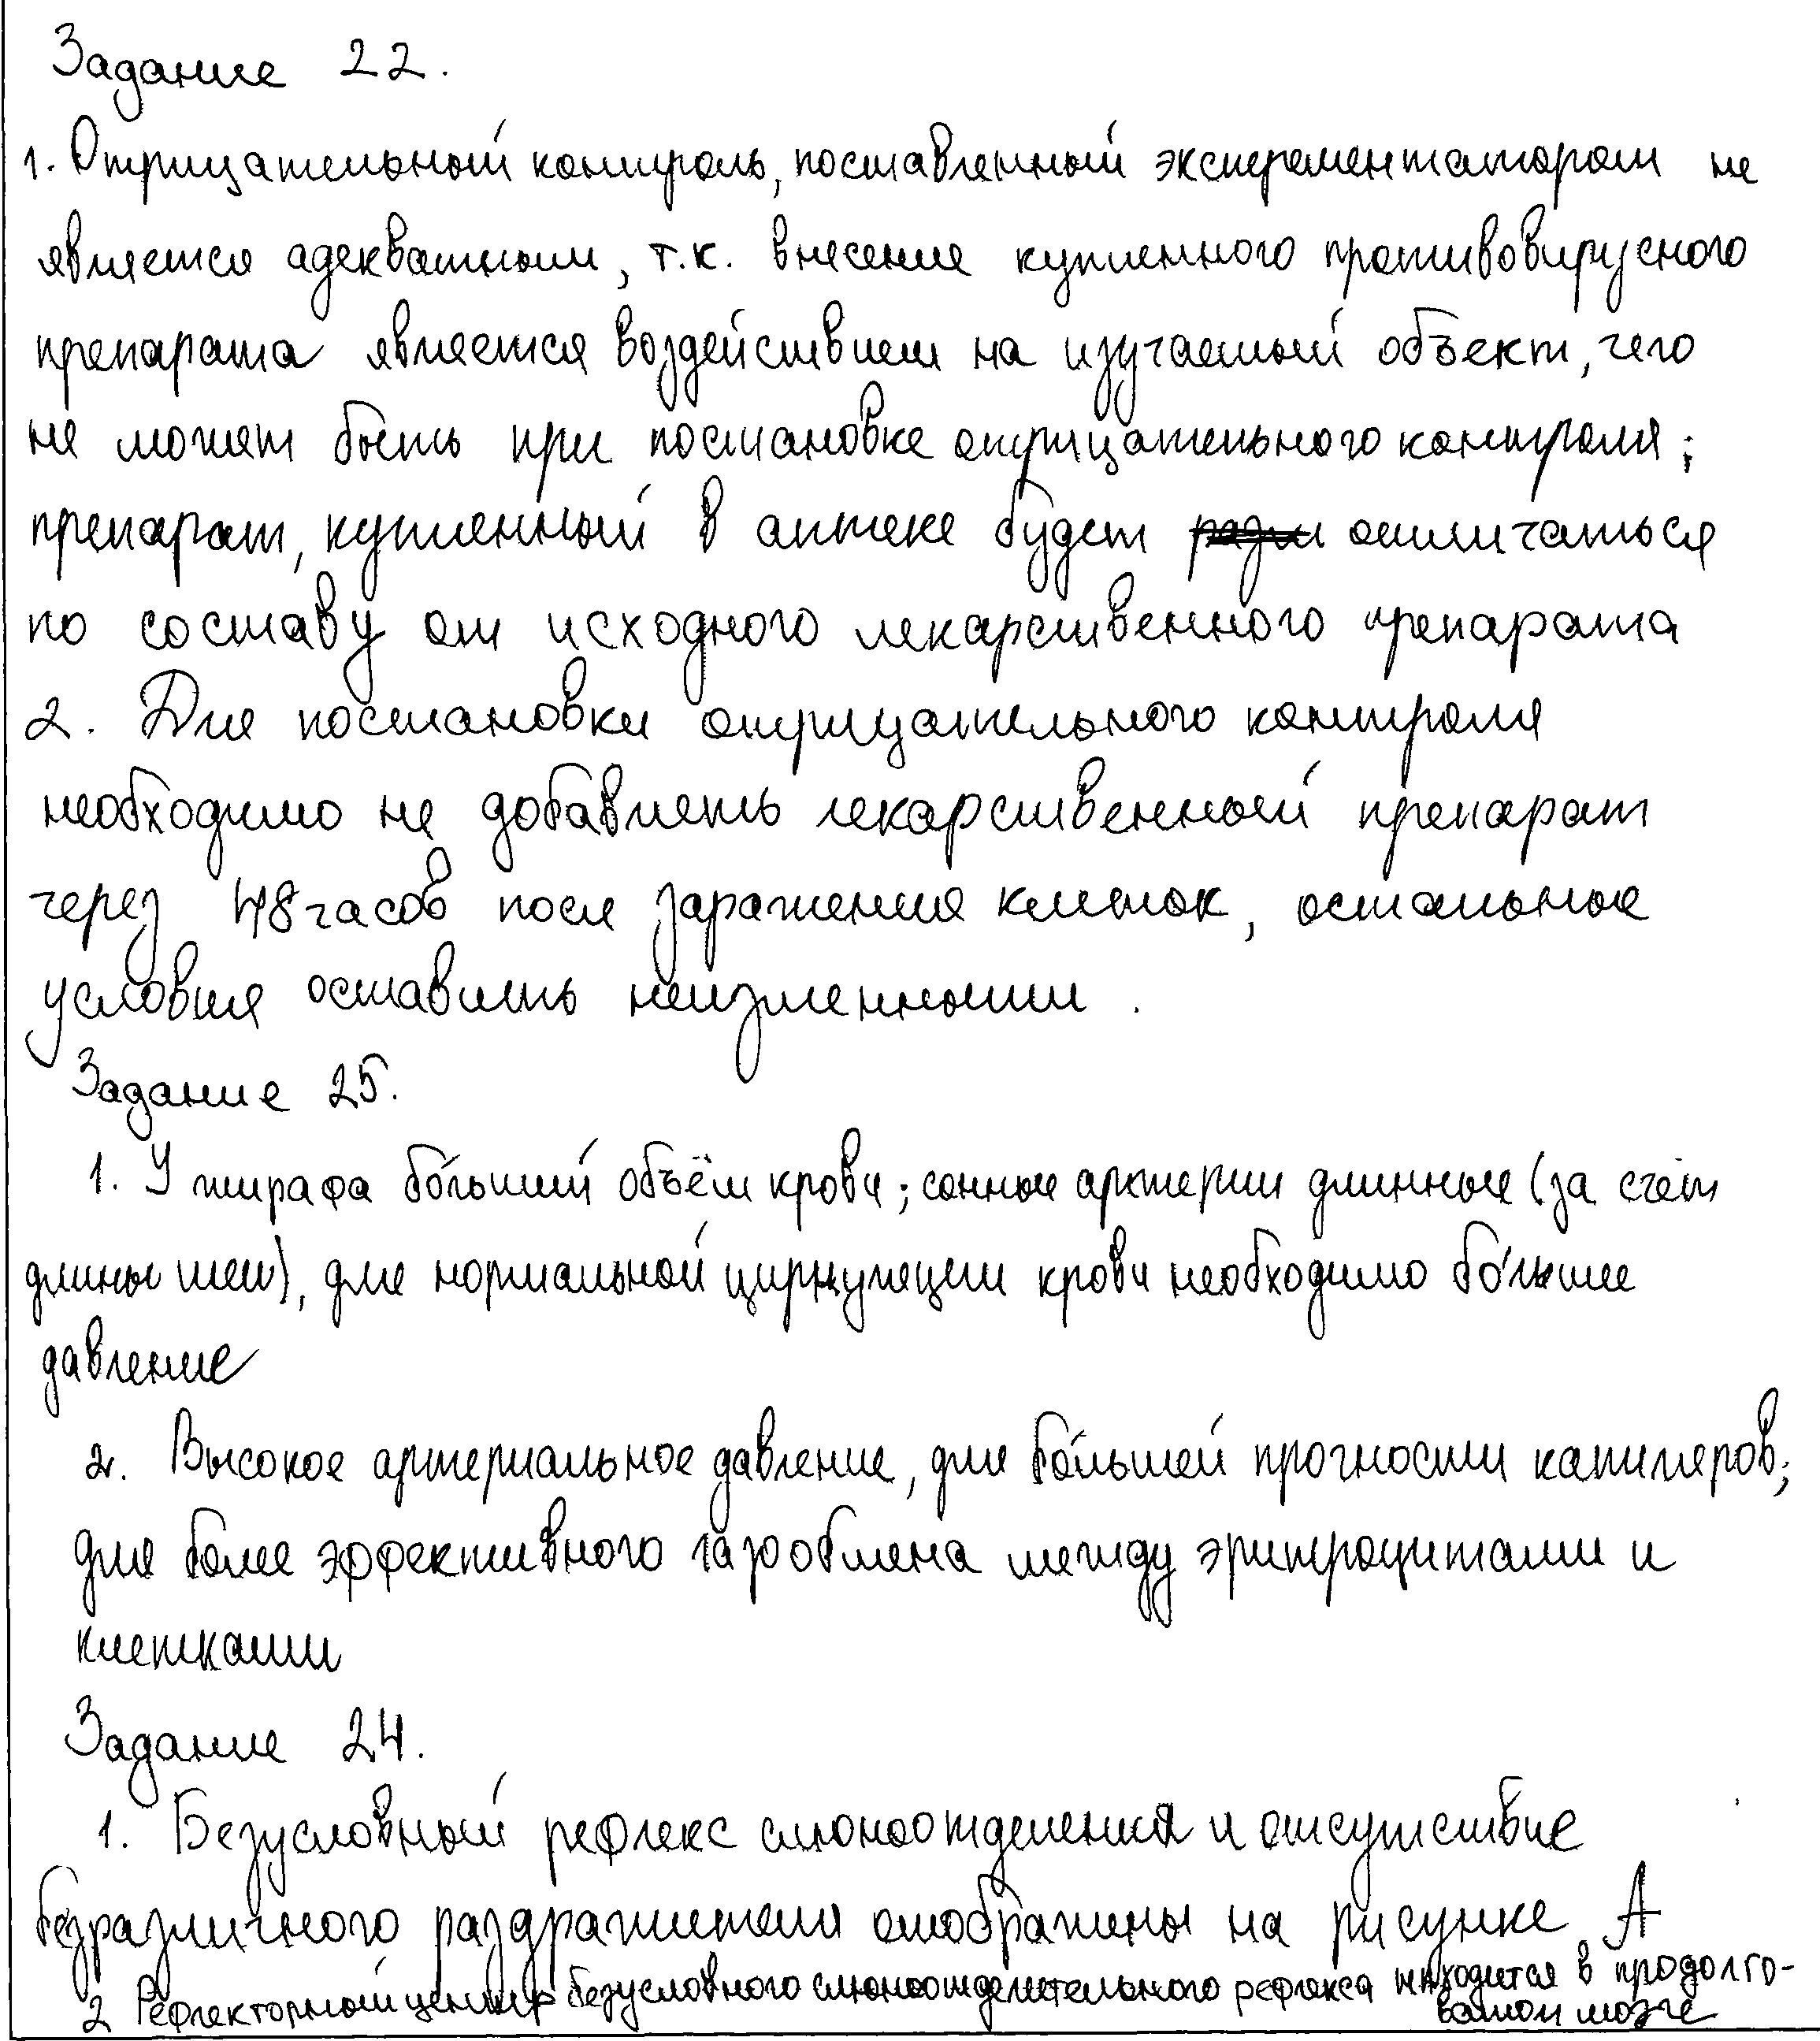 Задание 22.
1. Отрицательный контроль, поставленный эксперементатором не
является адекватным, т.к. внесение купленного противовирусного
препарата является воздействием на изучаемый объект, чего
не может быть при постановке отрицательного контроля;
препарат, купленный в аптеке будет отличаться
по составу от исходного лекарственного препарата
2. Для постановки отрицательного контроля
необходимо не добавлять лекарственный препарат
через 48 часов после заражения клеток, остальные
условия оставить неизменными.
Задание 25.
1. У жирафа бо́льший объём крови; сонные артерии длинные (за счёт
длины шеи), для нормальной циркуляции крови необходимо бо́льшее
давление
2. Высокое артериальное давление, для бо́льшей прочности капиляров;
для более эффективного газообмена между эритроцитами и
клетками
Задание 24.
1. Безусловный рефлекс слюноотделения и отсутствие
безразличного раздражителя отображены на рисунке А
2 Рефлекторный центр безусловного слюноотделительного рефлекса находится в продолго-
ватом мозге